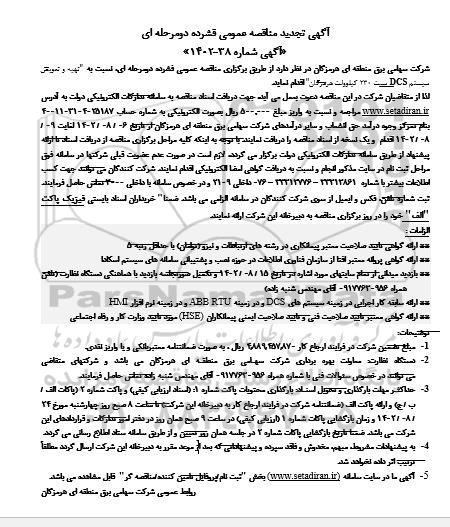 آگهی تجدید مناقصه عمومی فشرده دومرحله ای
«آگهی شماره ۳۸-۱۴۰۲»
شرکت سهامی برق منطقه ای هرمزگان در نظر دارد از طریق برگزاری مناقصه عمومی فشرده دومرحله ای، نسبت به "تهیه و تعویض
سیستم DCS پست ۲۳۰ کیلوولت" اقدام نماید.
لذا از متقاضیان شرکت در این مناقصه دعوت بعمل می آید، جهت دریافت اسناد مناقصه به سامانه تدارکات الکترونیکی دولت به آدرس
www.setadiran.ir مراجعه و نسبت به واریز مبلغ ۵۰۰,۰۰۰ ریال بصورت الکترونیکی به شماره حساب
بنام تمرکز وجوه درآمد حق انشعاب و سایر درآمدهای شرکت سهامی برق منطقه ای هرمزگان از تاریخ ۰۶ / ۰۸ / ۱۴۰۲ لغایت ۰۹ /
۰۸ / ۱۴۰۲ اقدام و یک نسخه از اسناد مناقصه را دریافت نمایند. با توجه به اینکه کلیه مراحل برگزاری مناقصه از دریافت اسناد تا ارائه
پیشنهاد از طریق سامانه تدارکات الکترونیکی دولت برگزار می گردد، لازم است در صورت عدم عضویت قبلی شرکتها در سامانه فوق
مراحل ثبت نام در سایت مذکور انجام و نسبت به دریافت گواهی امضا الکترونیکی اقدام نمایند. شرکت کنندگان می توانند جهت کسب
اطلاعات بیشتر با شماره ۳۳۳۱۲۸۶۱ – ۳۳۳۱۲۷۷۶ - ۰۷۶ داخلی ۲۱۰۹ و در خصوص سامانه با داخلی ۳۰۰۰ تماس حاصل فرمایند.
ثبت شماره تلفن، فکس و ایمیل از سوی شرکت کنندگان در سامانه الزامی می باشد. ضمنا" خریداران اسناد بایستی فیزیک پاکت
"الف" خود را در روز برگزاری مناقصه به دبیرخانه این شرکت ارائه نمایند.
الزامات :
** ارائه گواهی تایید صلاحیت معتبر پیمانکاری در رشته های ارتباطات و نیرو (توامان) با حداقل رتبه ۵
** ارائه گواهی پروانه معتبر افتا از سازمان فناوری اطلاعات در حوزه نصب و پشتیبانی سامانه های سیستم اسکادا
** بازدید میدانی از تمام سایتهای مورد اشاره در تاریخ ۱۵ / ۰۸ / ۱۴۰۲ و تکمیل صورتجلسه بازدید با هماهنگی دستگاه نظارت (تلفن
همراه آقای مهندس شنبه زاده)
** ارائه سابقه کار اجرایی در زمینه سیستم های DCS و در زمینه ABB RTU و در زمینه نرم افزار HMI
** ارائه گواهی معتبر تایید صلاحیت فنی و تایید صلاحیت ایمنی پیمانکاران (HSE) مورد تایید وزارت کار و رفاه اجتماعی
توضیحات :
1- مبلغ تضمین شرکت در فرایند ارجاع کار ریال، به صورت ضمانتنامه معتبر بانکی و یا واریز نقدی.
2- دستگاه نظارت: معاونت بهره برداری شرکت سهامی برق منطقه ای هرمزگان می باشد و شرکتهای متقاضی
می توانند در خصوص سئوالات فنی با شماره همراه آقای مهندس شنبه زاده تماس حاصل فرمایند.
3- حداکثر مهلت بارگذاری و تحویل اسناد، بارگذاری محتویات پاکت شماره ۱ (اسناد ارزیابی کیفی) و پاکت شماره ۲ (پاکات الف /
ب / ج) و ارائه پاکت الف (ضمانتنامه شرکت در فرایند ارجاع کار به دبیرخانه این شرکت) تا ساعت ۸ صبح روز چهارشنبه مورخ ۲۴
/ ۰۸ / ۱۴۰۲ و زمان بازگشایی پاکت شماره ۱ (ارزیابی کیفی) در ساعت ۹ صبح همان روز در دفتر امور تدارکات و قراردادهای این
شرکت می باشد. ضمنا تاریخ بازگشایی پاکت شماره ۲ در جلسه همان روز تعیین و از طریق سامانه ستاد اطلاع رسانی می گردد.
4- به پیشنهادات مشروط، مبهم، مخدوش و فاقد سپرده و پیشنهاداتی که بعد از موعد مقرر به دبیرخانه این شرکت ارسال گردد مطلقاً
ترتیب اثر داده نخواهد شد.
5- آگهی ما در سایت سامانه (www.setadiran.ir) بخش "ثبت نام/پروفایل تامین کننده/مناقصه گر" قابل مشاهده می باشد.
روابط عمومی شرکت سهامی برق منطقه ای هرمزگان